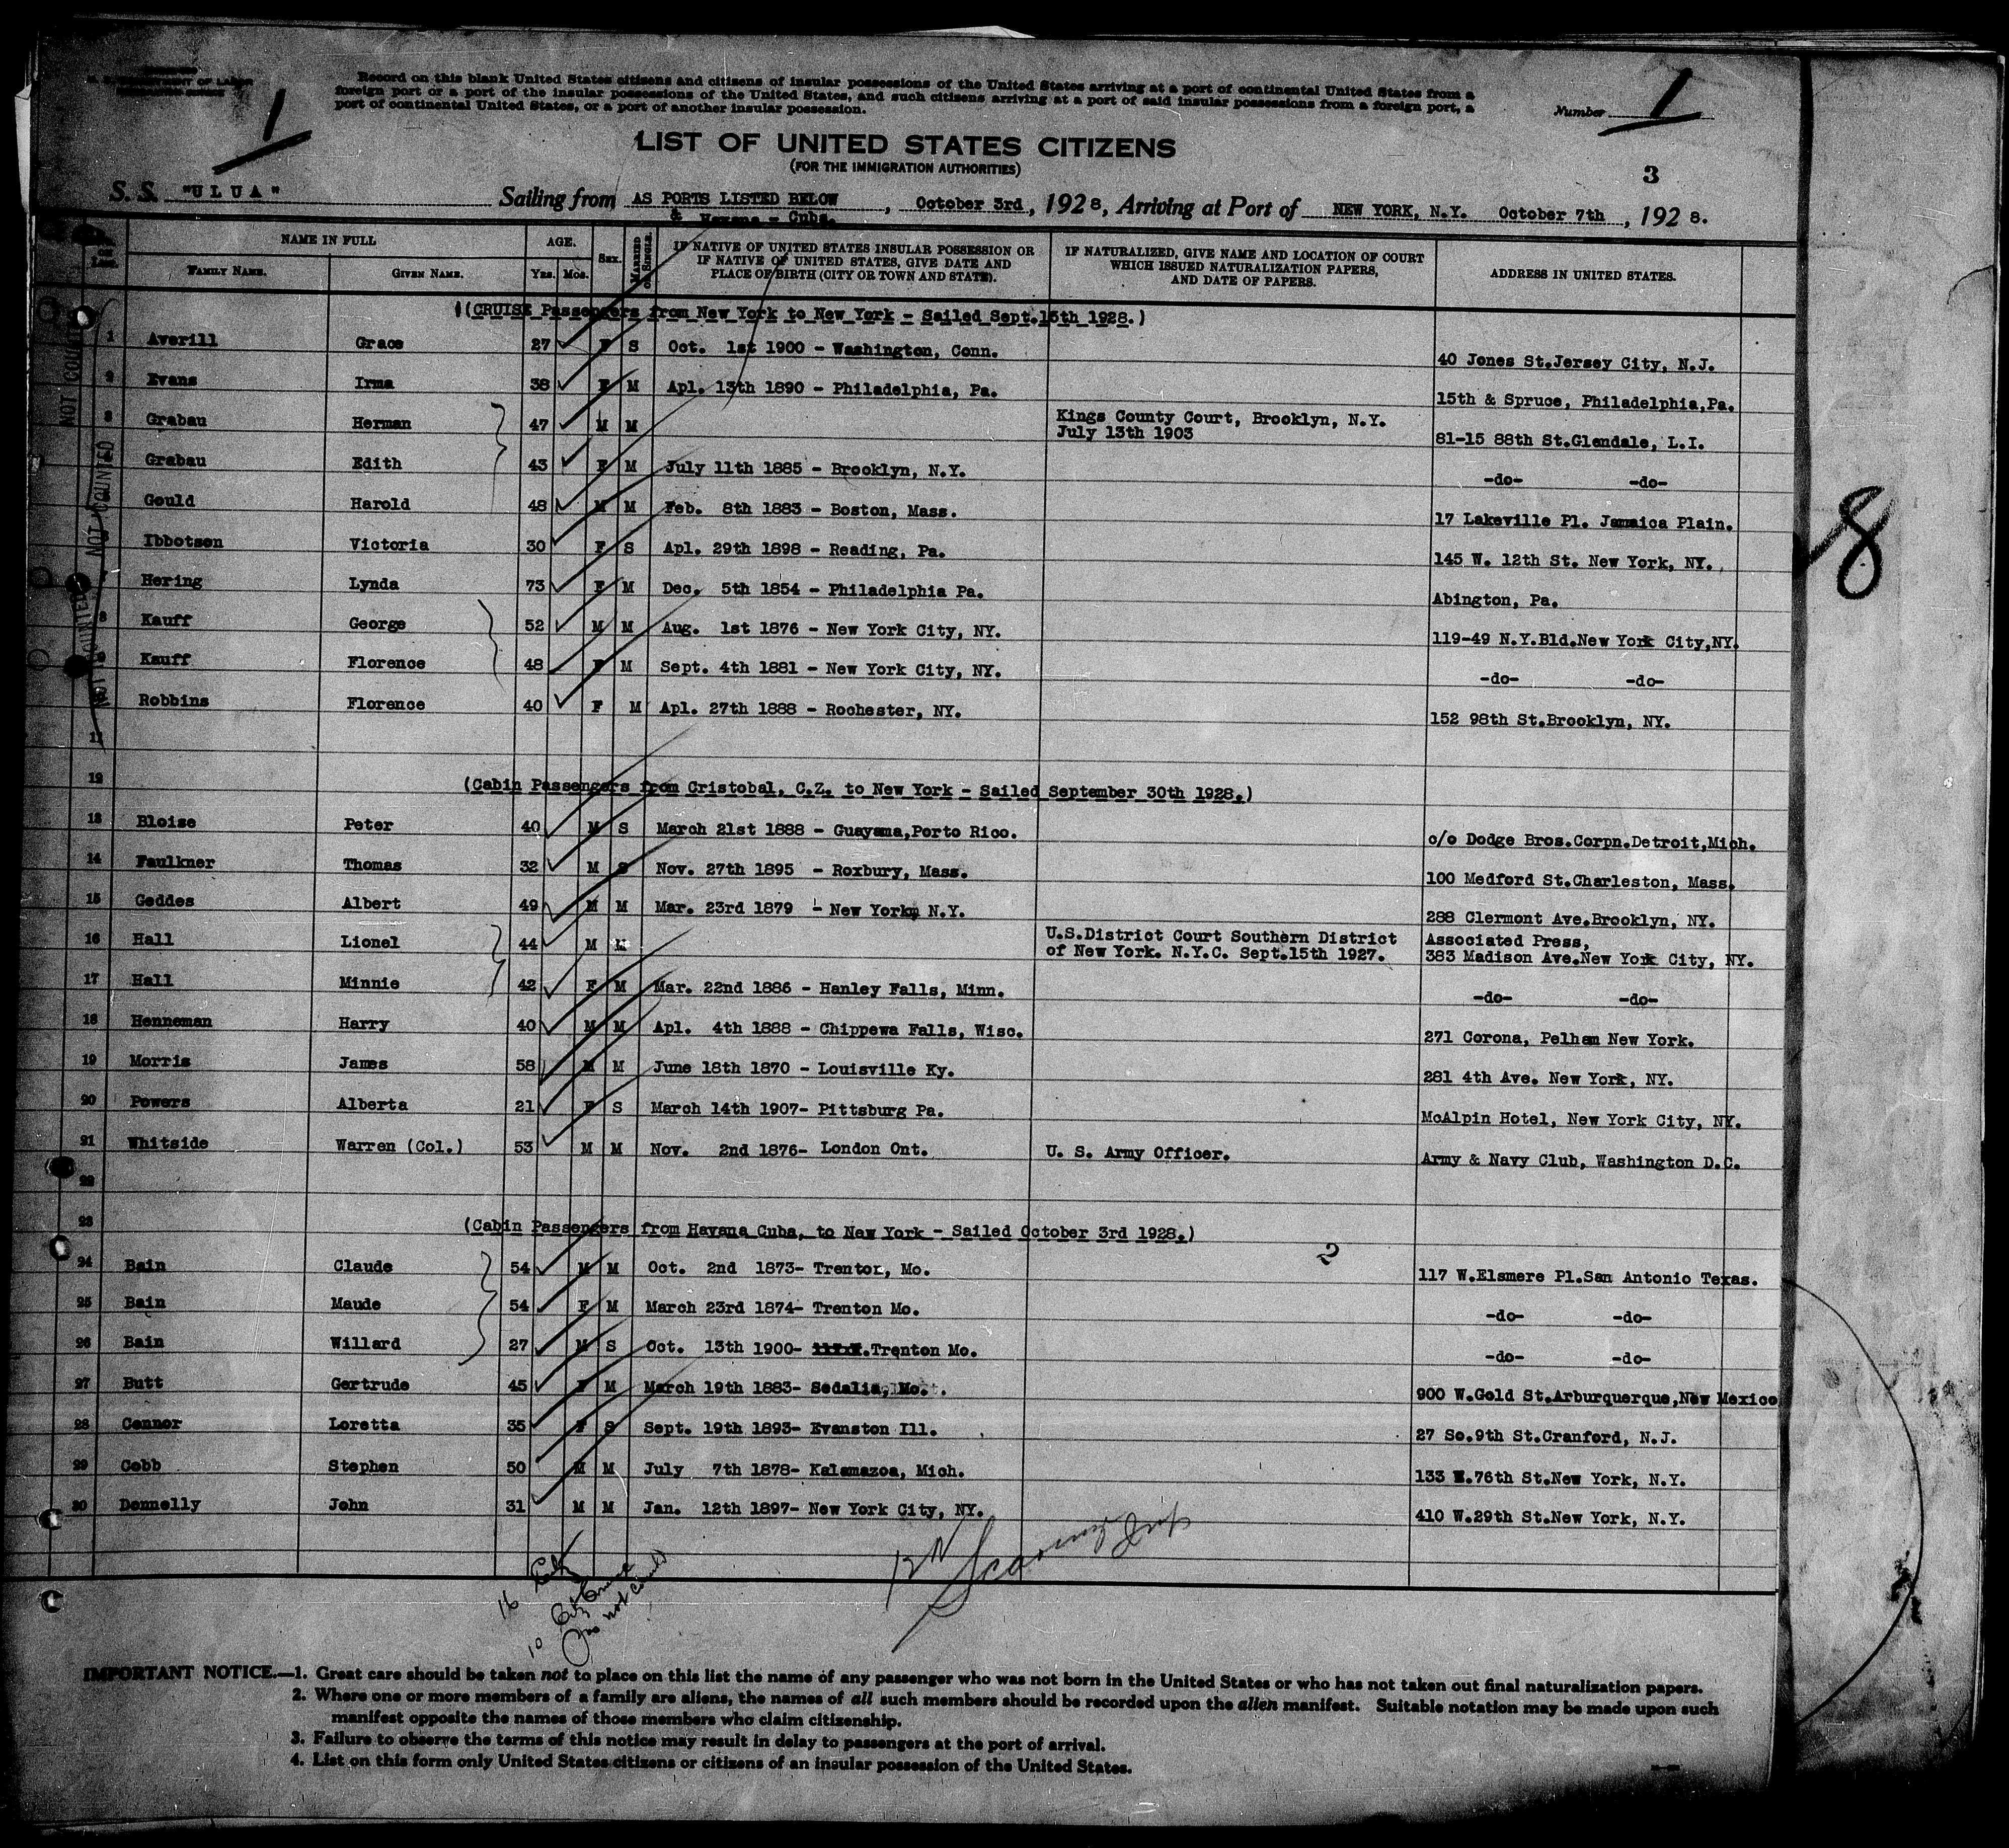 U. S. DEPARTMENT OF LABOR
IMMIGRATION SERVICE
1
Record on this blank United States citizens and citizens of insular possessions of the United States arriving at a port of continental United States from a
foreign port or a port of the insular possessions of the United States, and such citizens arriving at a port of said insular possessions from a foreign port, a
port of continental United States, or a port of another insular possession.
Number 1
LIST OF UNITED STATES CITIZENS
(FOR THE IMMIGRATION AUTHORITIES)
3
S. S. "ULUA" Sailing from AS PORTS LISTED BELOW, October 3rd, 1928, Arriving at Port of NEW YORK, N.Y. October 7th, 1928.
& Havana - Cuba.
NAME IN FULL AGE. Sex. MARRIED OR SINGLE. IF NATIVE OF UNITED STATES INSULAR POSSESSION OR IF NATIVE OF UNITED STATES, GIVE DATE AND PLACE OF BIRTH (CITY OR TOWN AND STATE). IF NATURALIZED, GIVE NAME AND LOCATION OF COURT WHICH ISSUED NATURALIZATION PAPERS, AND DATE OF PAPERS. ADDRESS IN UNITED STATES.
FAMILY NAME. GIVEN NAME. Yrs. Mos.
(CRUISE Passengers from New York to New York - Sailed Sept.15th 1928.)
1 Averill Grace 27 F S Oct. 1st 1900 - Washington, Conn. 40 Jones St.Jersey City, N.J.
2 Evans Irma 38 F M Apl. 13th 1890 - Philadelphia, Pa. 15th & Spruce, Philadelphia,Pa.
3 Grabau Herman 47 M M Kings County Court, Brooklyn, N.Y. July 13th 1903 81-15 88th St.Glendale, L.I.
Grabau Edith 43 F M July 11th 1885 - Brooklyn, N.Y. -do- -do-
Gould Harold 48 M M Feb. 8th 1883 - Boston, Mass. 17 Lakeville Pl. Jamaica Plain.
Ibbotson Victoria 30 F S Apl. 29th 1898 - Reading, Pa. 145 W. 12th St. New York, NY.
Hering Lynda 73 F M Dec. 5th 1854 - Philadelphia Pa. Abington, Pa.
8 Kauff George 52 M M Aug. 1st 1876 - New York City, NY. 119-49 N.Y.Bld.New York City,NY.
9 Kauff Florence 48 F M Sept. 4th 1881 - New York City, NY. -do- -do-
Robbins Florence 40 F M Apl. 27th 1888 - Rochester, NY. 152 98th St.Brooklyn, NY.
11
12
(Cabin Passengers from Cristobal, C.Z. to New York - Sailed September 30th 1928.)
13 Bloise Peter 40 M S March 21st 1888 - Guayama,Porto Rico. c/o Dodge Bros.Corpn.Detroit,Mich.
14 Faulkner Thomas 32 M S Nov. 27th 1895 - Roxbury, Mass. 100 Medford St.Charleston, Mass.
15 Geddes Albert 49 M M Mar. 23rd 1879 - New York, N.Y. 288 Clermont Ave.Brooklyn, NY.
16 Hall Lionel 44 M M U.S.District Court Southern District of New York. N.Y.C. Sept.15th 1927. Associated Press, 383 Madison Ave.New York City, NY.
17 Hall Minnie 42 F M Mar. 22nd 1886 - Hanley Falls, Minn. -do- -do-
18 Henneman Harry 40 M M Apl. 4th 1888 - Chippewa Falls, Wisc. 271 Corona, Pelham New York.
19 Morris James 58 M M June 18th 1870 - Louisville Ky. 281 4th Ave. New York, NY.
20 Powers Alberta 21 F S March 14th 1907- Pittsburg Pa. McAlpin Hotel, New York City, NY.
21 Whitside Warren (Col.) 53 M M Nov. 2nd 1876- London Ont. U. S. Army Officer. Army & Navy Club, Washington D.C.
22
23
(Cabin Passengers from Havana Cuba, to New York - Sailed October 3rd 1928.)
2
24 Bain Claude 54 M M Oct. 2nd 1873- Trenton, Mo. 117 W.Elsmere Pl.San Antonio Texas.
25 Bain Maude 54 F M March 23rd 1874- Trenton Mo. -do- -do-
26 Bain Willard 27 M S Oct. 13th 1900- Trenton Mo. -do- -do-
27 Butt Gertrude 45 F M March 19th 1883- Sedalia, Mo. 900 W.Gold St.Arburquerque,New Mexico
28 Connor Loretta 35 F S Sept. 19th 1893- Evanston Ill. 27 So.9th St.Cranford, N.J.
29 Cobb Stephen 50 M M July 7th 1878- Kalamazoa, Mich. 133 E.76th St.New York, N.Y.
30 Donnelly John 31 M M Jan. 12th 1897- New York City, NY. 410 W.29th St.New York, N.Y.
NOT COUNTED
NOT COUNTED
NOT COUNTED
8
16
10
not
IMPORTANT NOTICE.—1. Great care should be taken not to place on this list the name of any passenger who was not born in the United States or who has not taken out final naturalization papers.
2. Where one or more members of a family are aliens, the names of all such members should be recorded upon the alien manifest. Suitable notation may be made upon such
manifest opposite the names of those members who claim citizenship.
3. Failure to observe the terms of this notice may result in delay to passengers at the port of arrival.
4. List on this form only United States citizens or citizens of an insular possession of the United States.